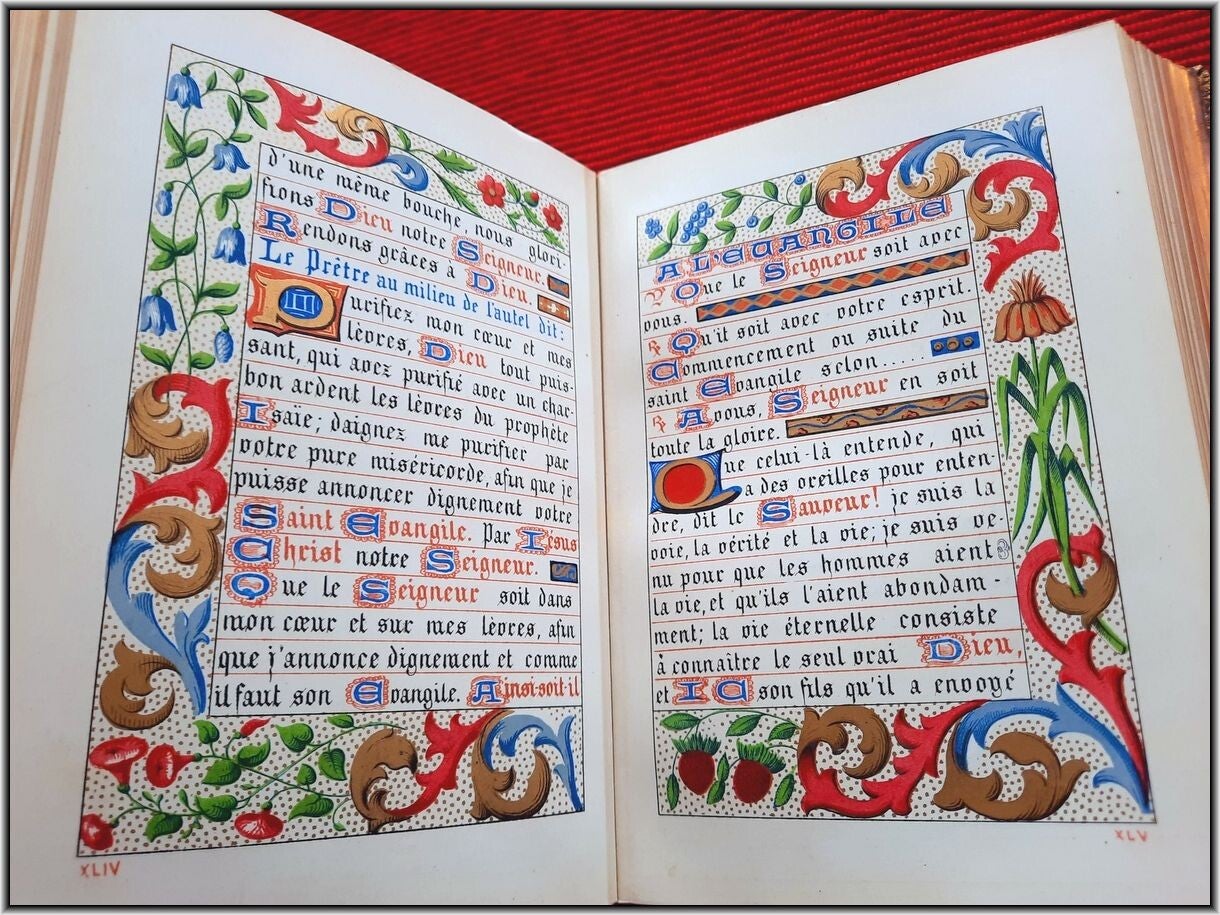 d'une même bouche, nous glori-
fions Dieu notre Seigneur.
Rendons grâces à Dieu.
Le Prêtre au milieu de l'autel dit:
Purifiez mon cœur et mes
lèvres, Dieu tout puis-
sant, qui avez purifié avec un char-
bon ardent les lèvres du prophète
Isaïe; daignez me purifier par
votre pure miséricorde, afin que je
puisse annoncer dignement votre
Saint Evangile. Par Jésus
Christ notre Seigneur.
Que le Seigneur soit dans
mon cœur et sur mes lèvres, afin
que j'annonce dignement et comme
il faut son Evangile. Ainsi-soit-il
XLIV
A L'EVANGILE
℣ Que le Seigneur soit avec
vous.
℟ Qu'it soit avec votre esprit.
Commencement ou suite du
saint Evangile selon......
℟ A vous, Seigneur en soit
toute la gloire.
Que celui-là entende, qui
a des oreilles pour enten-
dre, dit le Sauveur! je suis la
voie, la vérité et la vie; je suis ve-
nu pour que les hommes aient
la vie, et qu'ils l'aient abondam-
ment; la vie éternelle consiste
à connaître le seul vrai Dieu,
et I C son fils qu'il a envoyé
XLV